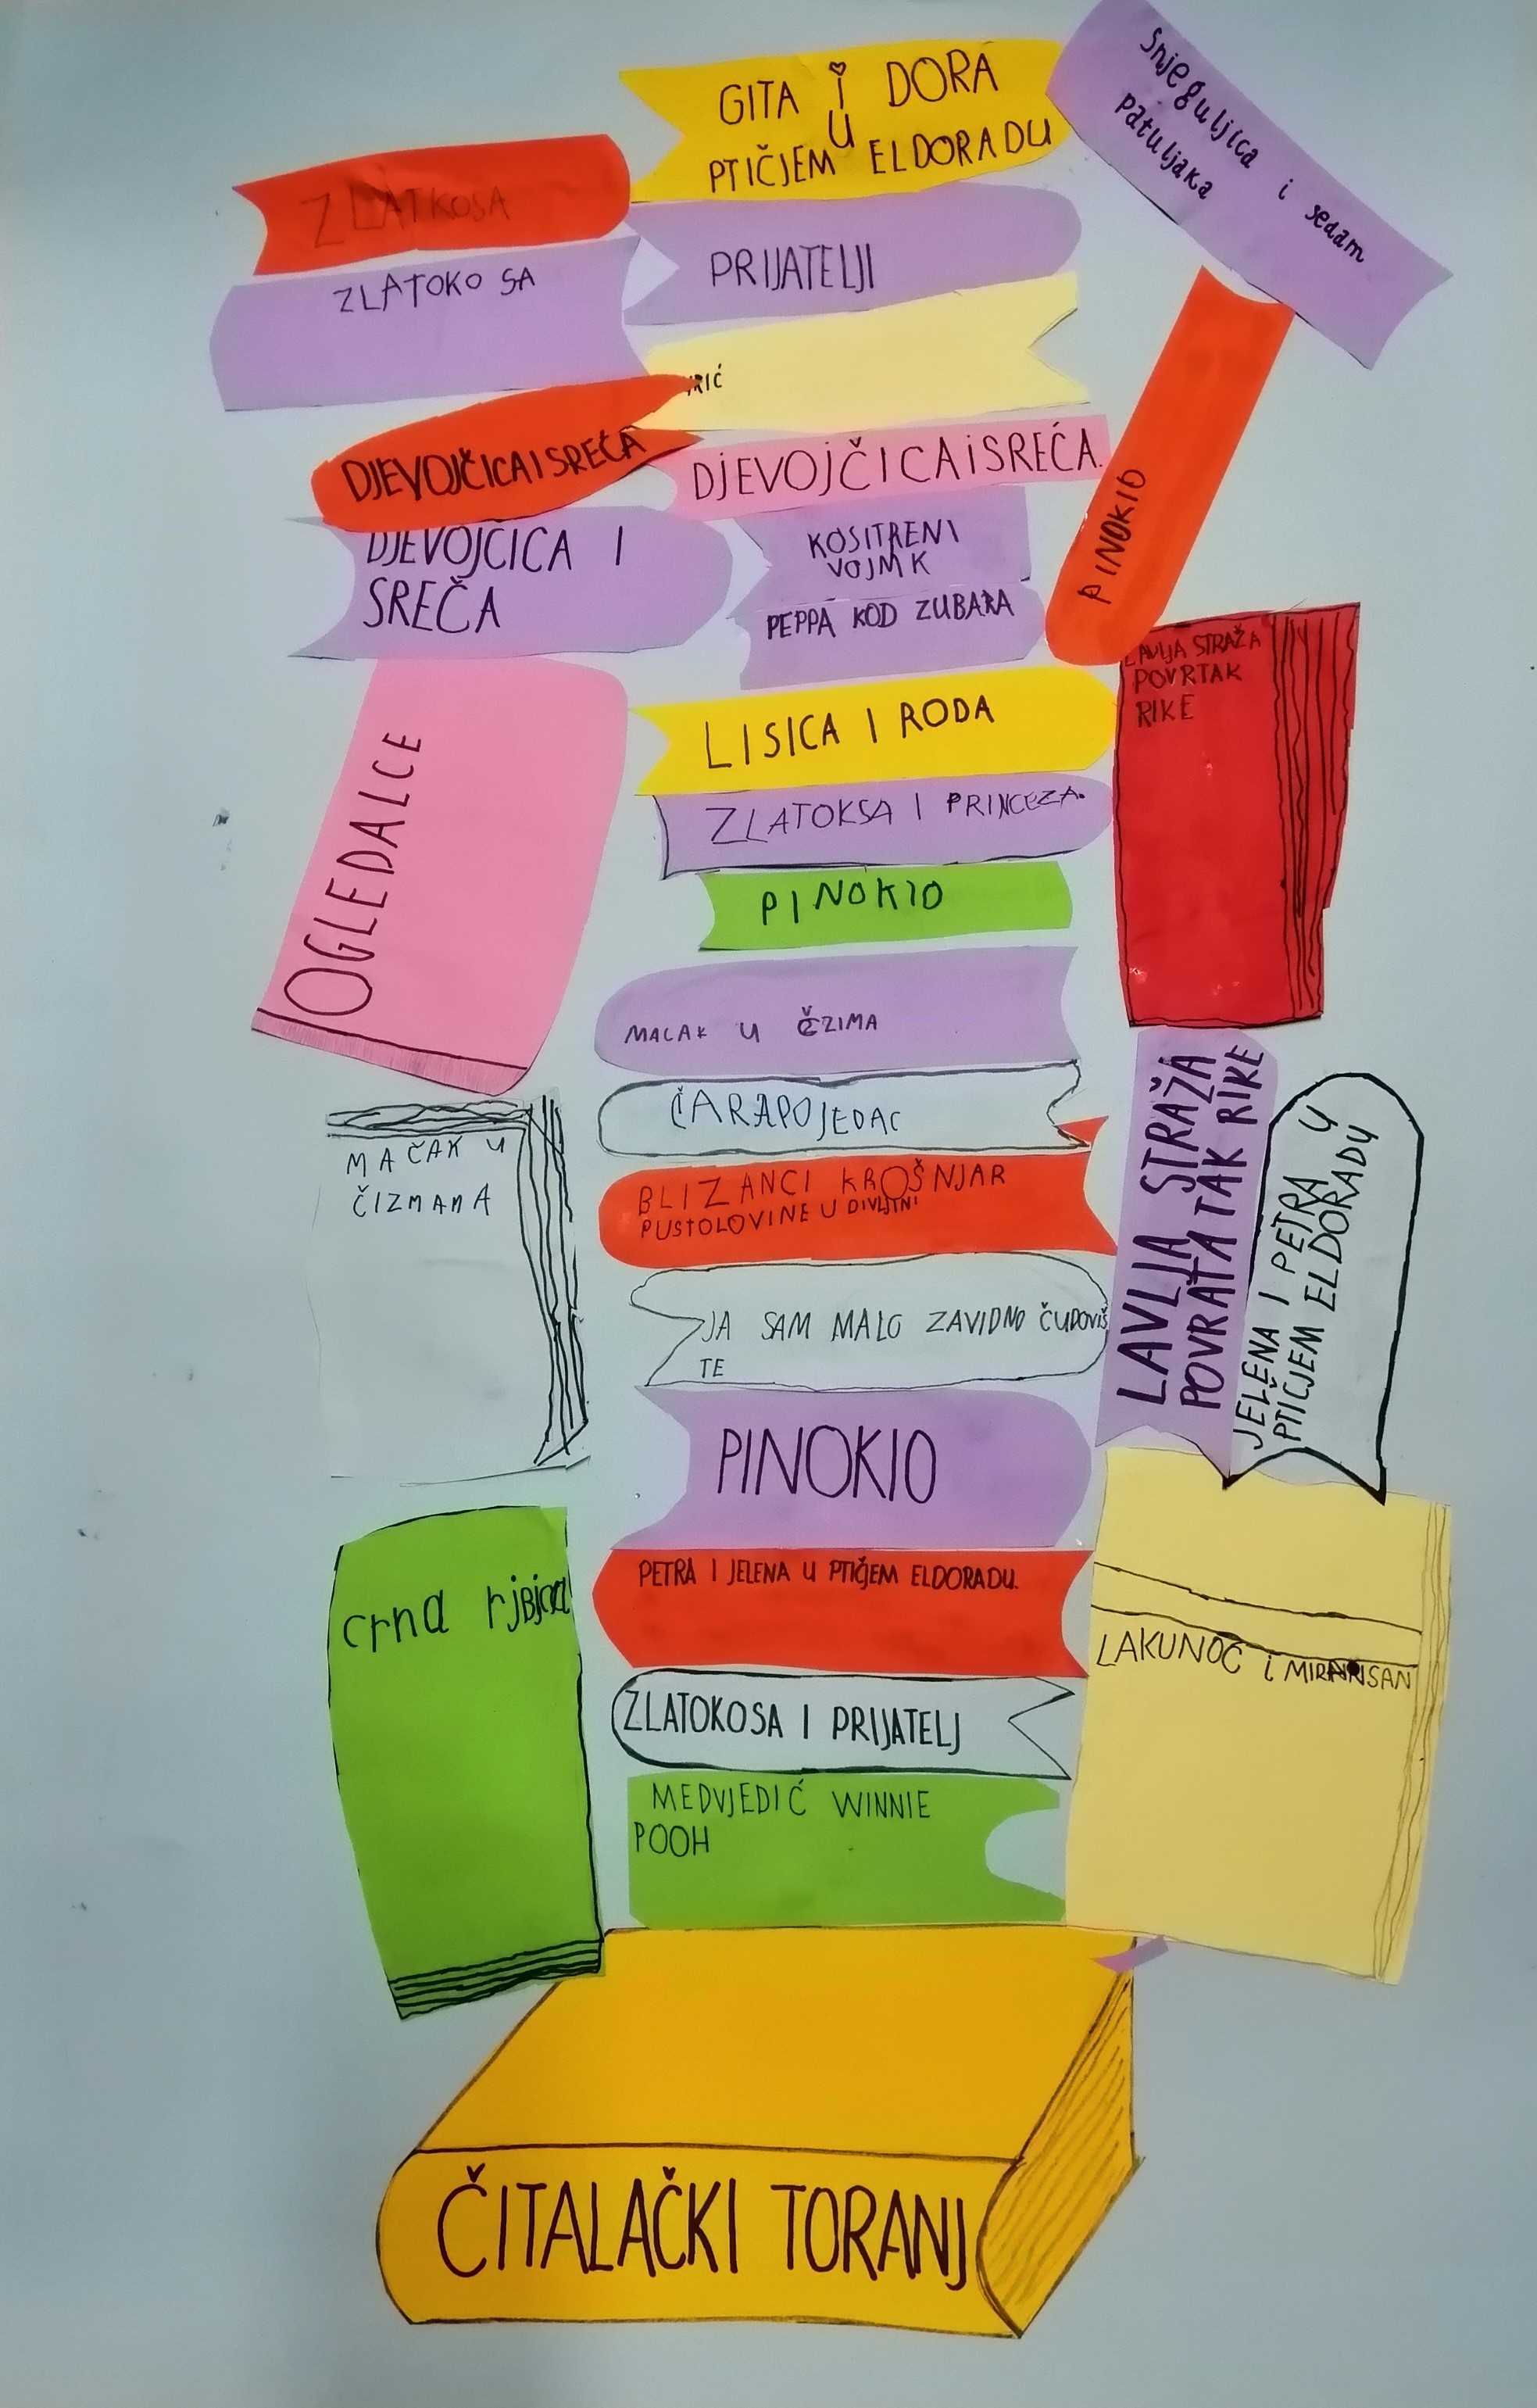 GITA i DORA
U
PTIČJEM ELDORADU
Snjeguljica i sedam
patuljaka
ZLATKOSA
PRIJATELJI
ZLATOKO SA
RIĆ
DJEVOJČICA I SREĆA
DJEVOJČICA i SREĆA.
PINOKIO
DJEVOJČICA I
SREČA
KOSITRENI
VOJMK
PEPPA KOD ZUBARA
LAVLJA STRAŽA
POVRTAK
RIKE
OGLEDALCE
LISICA I RODA
ZLATOKSA I PRINCEZA.
PINOKIO
MACAK U ČZIMA
ČARAPOJEDAC
LAVLJA STRAŽA
POVRATAK RIKE
JELENA I PETRA U
PTIČJEM ELDORADU
MAČAK U
ČIZMAMA
BLIZANCI KROŠNJAR
PUSTOLOVINE U DIVLJINI
JA SAM MALO ZAVIDNO ČUDOVIŠ
TE
PINOKIO
PETRA I JELENA U PTIČJEM ELDORADU.
crna
LAKUNOĆ i
ZLATOKOSA I PRIJATELJ
MEDVJEDIĆ WINNIE
POOH
ČITALAČKI TORANJ